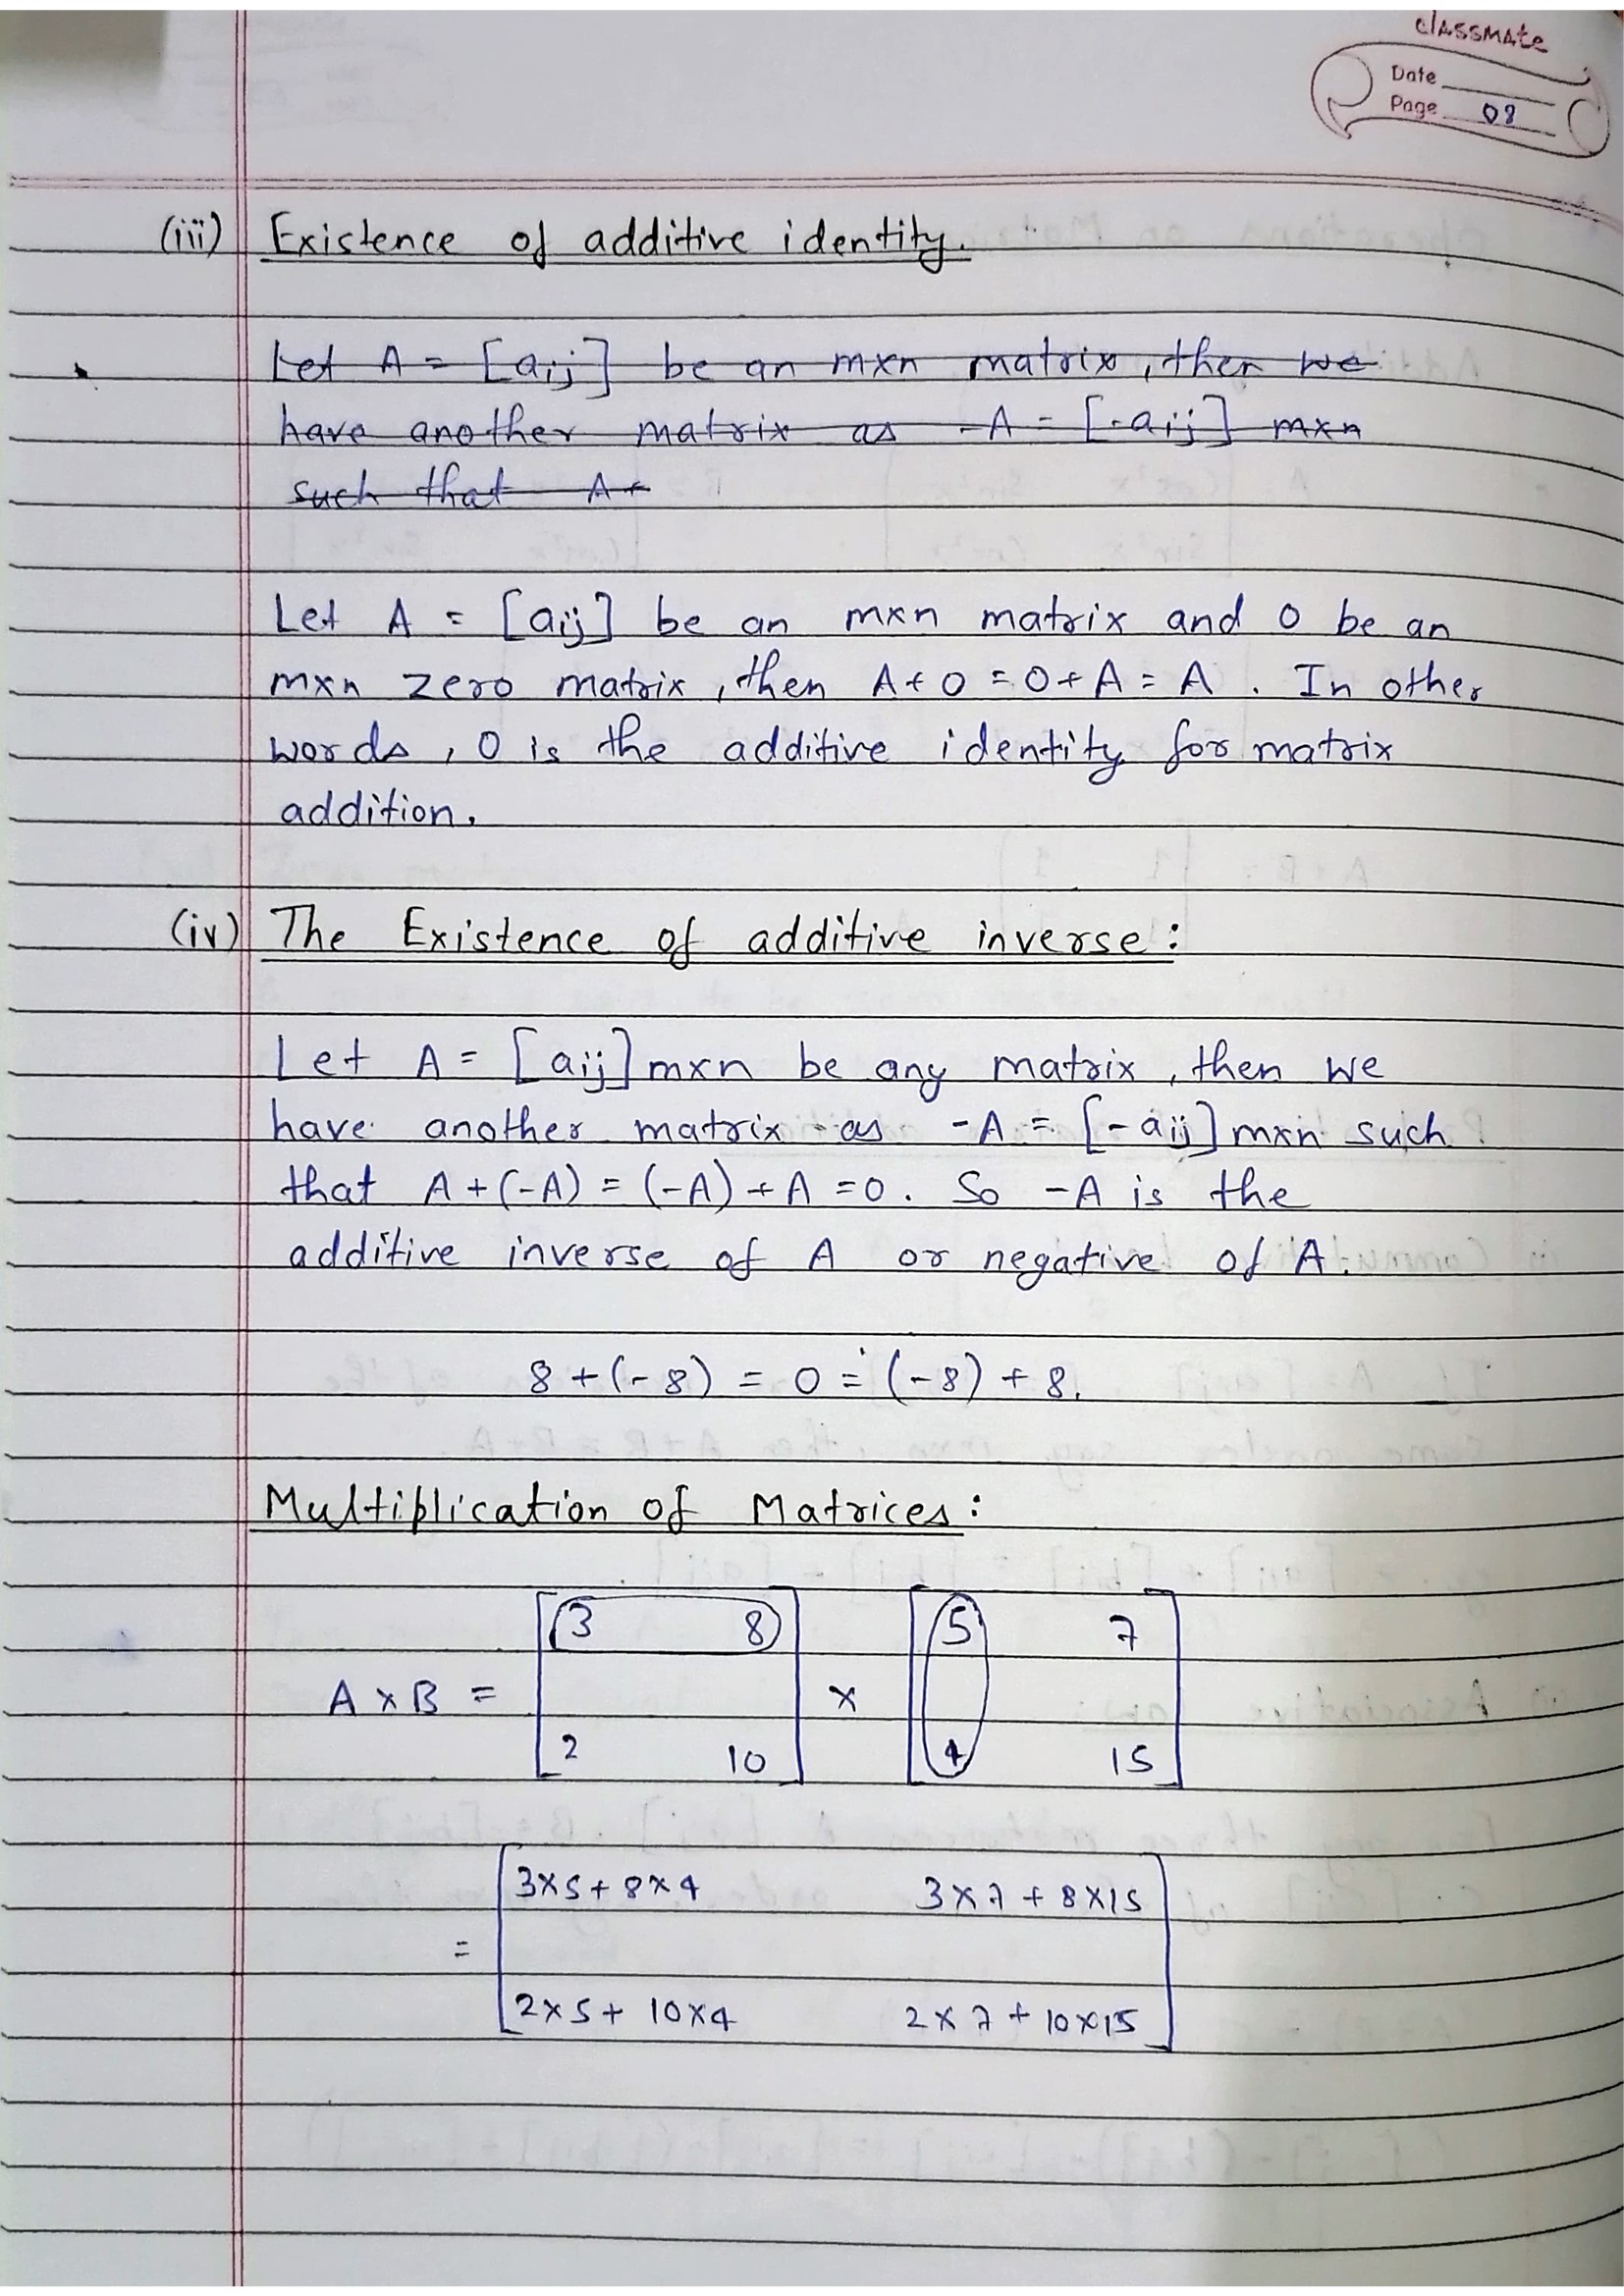 classmate
Date
Page 08
(iii) Existence of additive identity.
Let A = [aij] be an mxn matrix, then we
have another matrix as -A = [-aij] mxn
such that A+
Let A = [aij] be an mxn matrix and O be an
mxn zero matrix, then A+O = O+A = A. In other
words, O is the additive identity for matrix
addition.
(iv) The Existence of additive inverse:
Let A = [aij]mxn be any matrix, then we
have another matrix as -A = [-aij]mxn such
that A+(-A) = (-A)+A =0. So -A is the
additive inverse of A or negative of A.
8+(-8) = 0 = (-8)+8.
Multiplication of Matrices:
3 8 5 7
A×B = ×
2 10 4 15
3×5+8×4 3×7+8×15
=
2×5+10×4 2×7+10×15